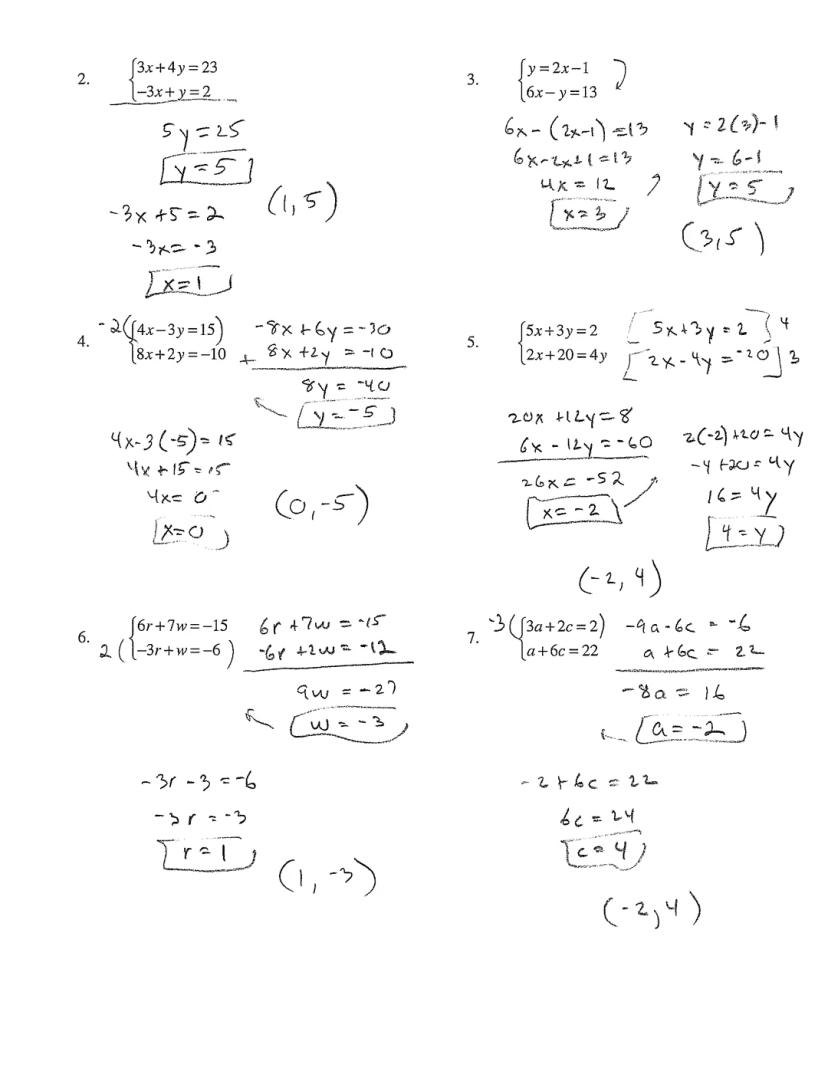 2. 3x+4y=23
-3x+y=2
5y=25
y=5
-3x+5=2
-3x=-3
x=1
(1,5)
3. y=2x-1
6x-y=13
6x-(2x-1)=13
6x-2x+1=13
4x=12
x=3
y=2(3)-1
y=6-1
y=5
(3,5)
4. -2(4x-3y=15)
8x+2y=-10
-8x+6y=-30
+ 8x+2y=-10
8y=-40
y=-5
4x-3(-5)=15
4x+15=15
4x=0
x=0
(0,-5)
5. 5x+3y=2
2x+20=4y
[5x+3y=2]4
[2x-4y=-20]3
20x+12y=8
6x-12y=-60
26x=-52
x=-2
2(-2)+20=4y
-4+20=4y
16=4y
4=y
(-2,4)
6. 6r+7w=-15
2(-3r+w=-6)
6r+7w=-15
-6r+2w=-12
9w=-27
w=-3
-3r-3=-6
-3r=-3
r=1
(1,-3)
7. -3(3a+2c=2)
a+6c=22
-9a-6c=-6
a+6c=22
-8a=16
a=-2
-2+6c=22
6c=24
c=4
(-2,4)